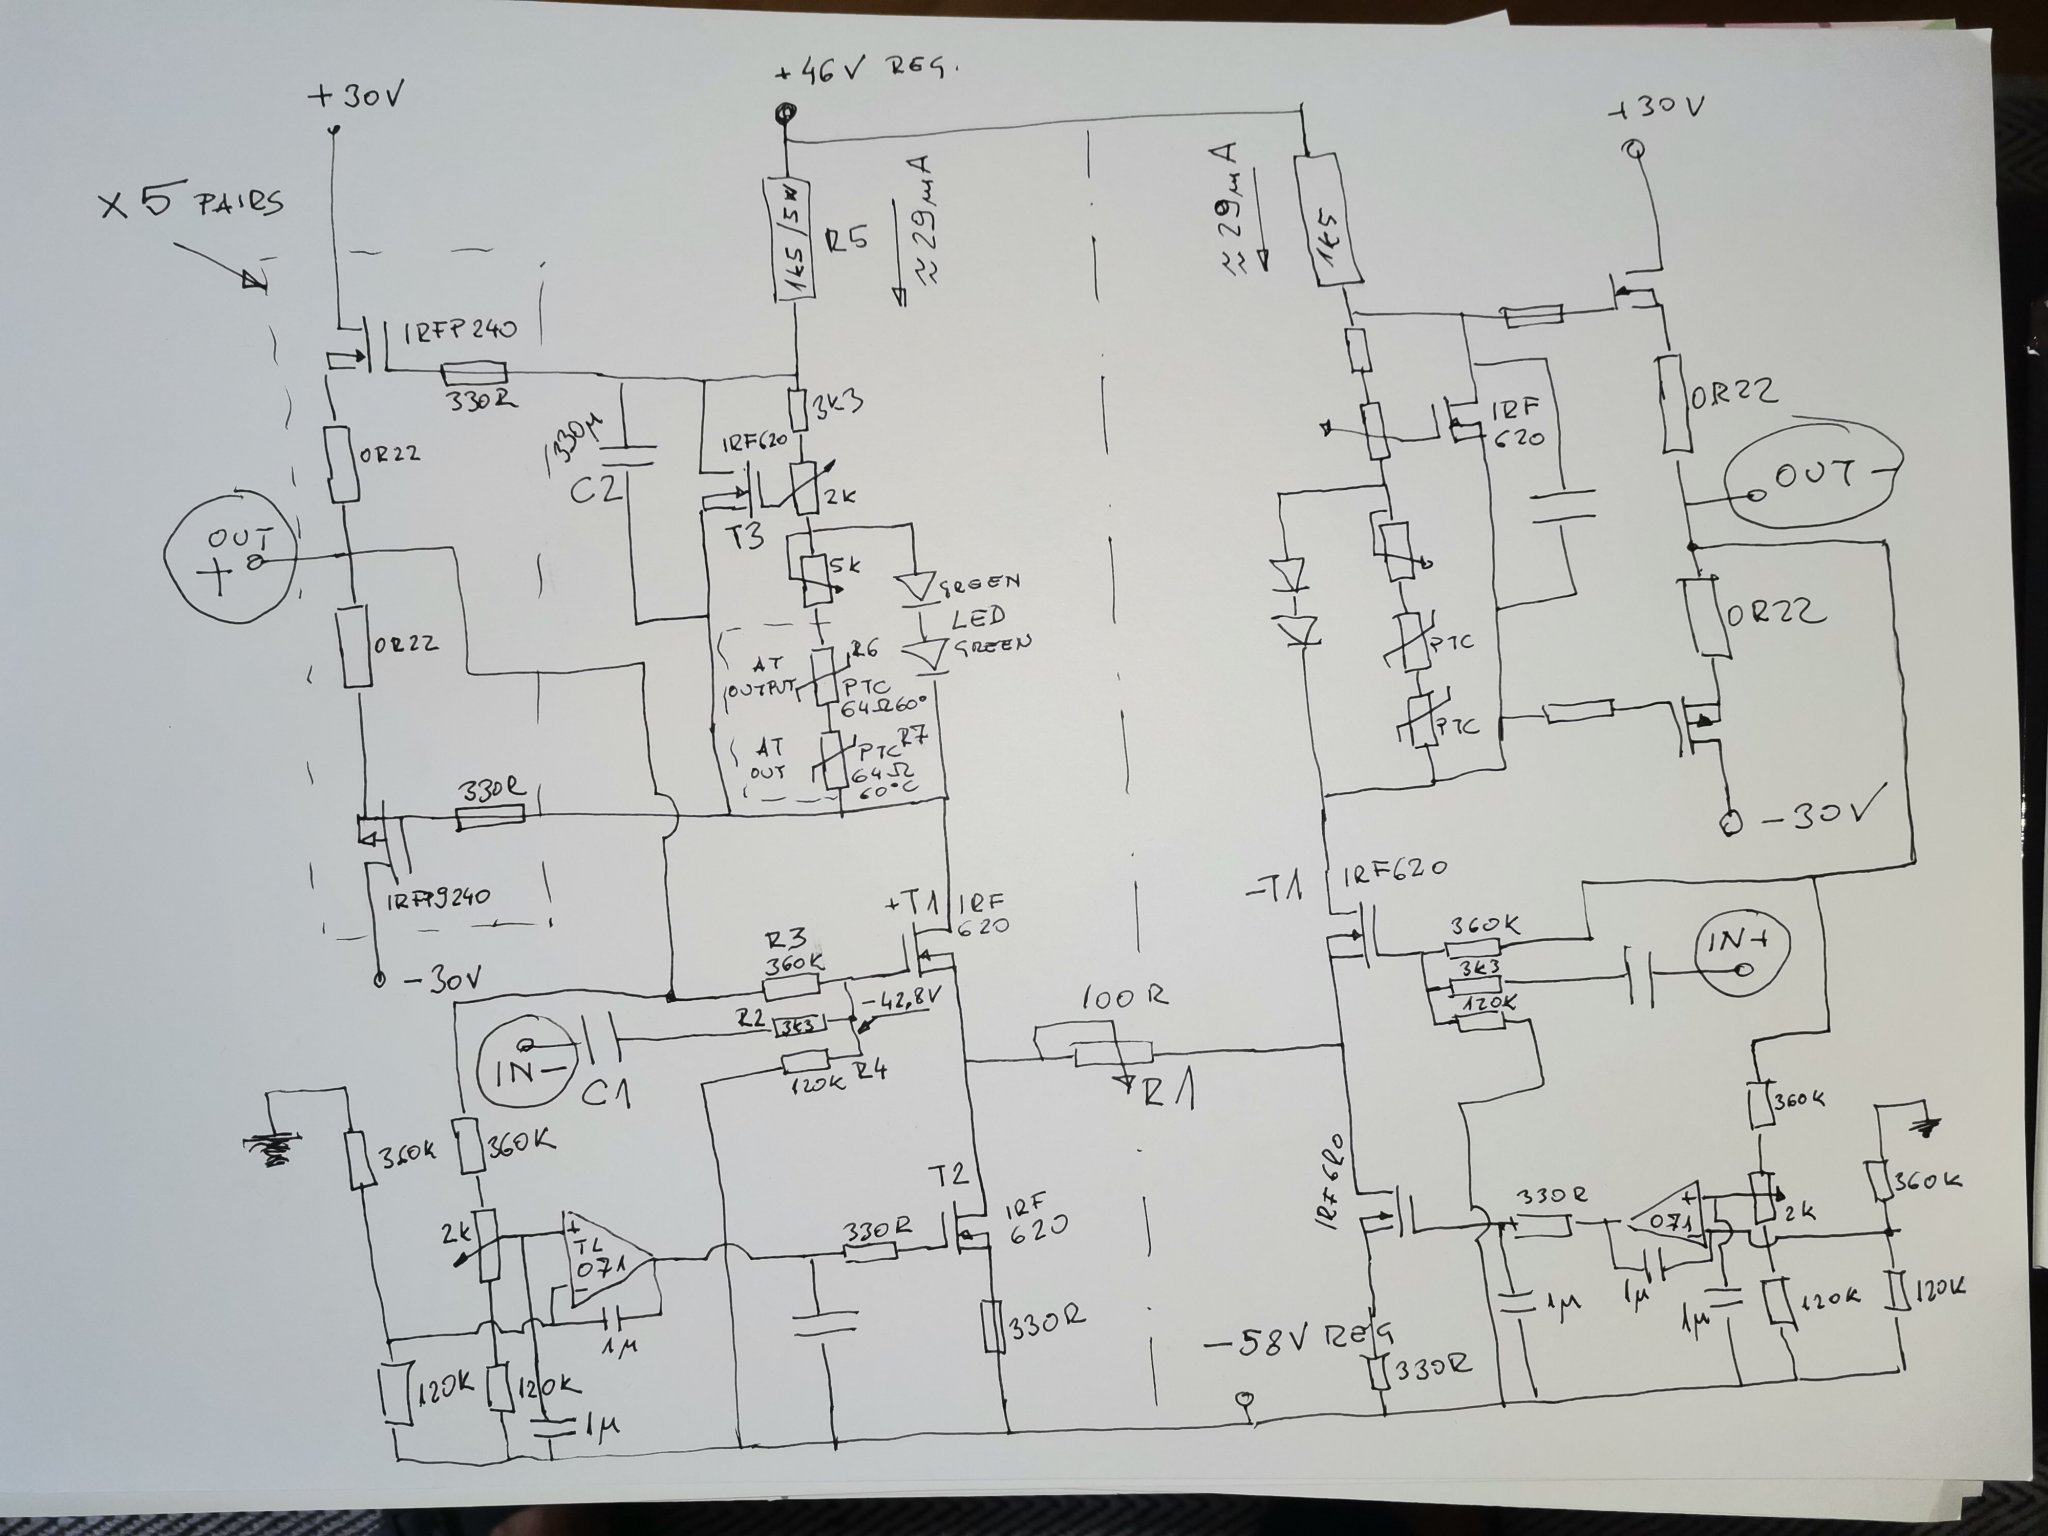 +46V REG.
+30V
+30V
×5 PAIRS
1k5/5W
R5
≈29mA
≈29mA
1k5
IRFP240
330R
3k3
0R22
330μ
C2
IRF620
T3
2k
IRF
620
0R22
OUT
+
OUT-
5k
GREEN
LED
GREEN
0R22
0R22
AT
OUTPUT
R6
PTC
64Ω60°
PTC
AT
OUT
PTC
R7
64Ω
60°C
PTC
330R
-30V
IRFP9240
-30V
+T1
IRF
620
-T1
IRF620
R3
360K
-42,8V
R2
3k3
120K
R4
IN-
C1
100R
R1
360K
3k3
120K
IN+
360K
360K
360K
360K
T2
IRF
620
IRF620
2k
+
TL
071
-
330R
330R
071
+
-
2k
1μ
330R
1μ
1μ
1μ
120K
120K
120K
120K
1μ
-58V REG
330R